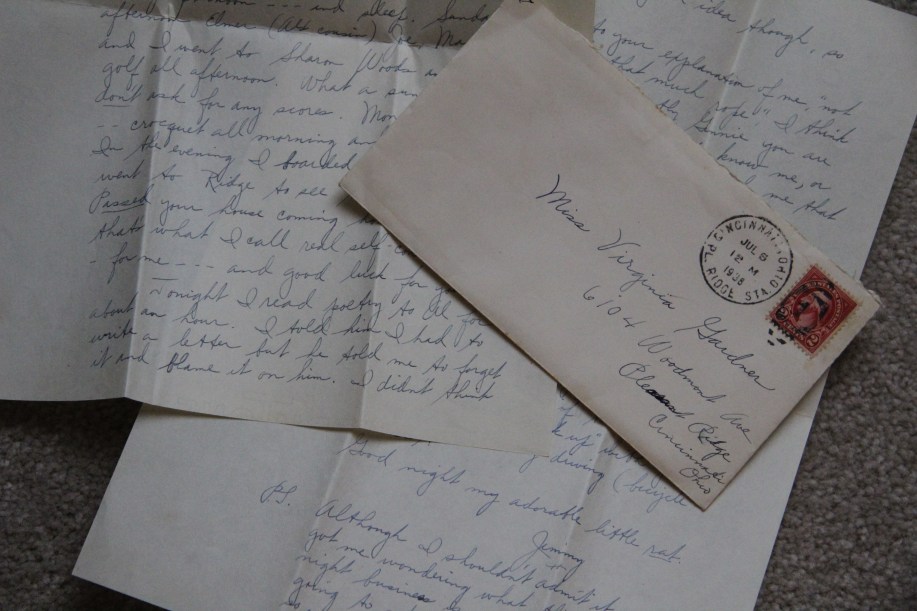 and sleep. Sunday
afternoon Elmer (Alt cousin)
and I went to Sharon Woods
golf all afternoon. What a
don't ask for any scores. Mon
-- crocquet all morning
In the evening I boarded
went to Ridge to see
Passed your house coming
thats what I call real self-
- for me --- and good luck for
Tonight I read poetry to
about an hour. I told him I had to
write a letter but he told me to forget
it and blame it on him. I didnt think
idea though, so
to your explanation of me, "not
that much rope". I think
Ginnie you are
know me, or
me that
Miss Virginia Gardner
6104 Woodmont Ave
Pleasant Ridge
Cincinnati
Ohio
CINCINNATI, OHIO
JUL 6
12 M
1938
PL. RIDGE STA.
2
diving (bicycle
Good night my adorable little rat.
Jimmy
PS. Although I shouldn't admit it
got me wondering what
night business
going to